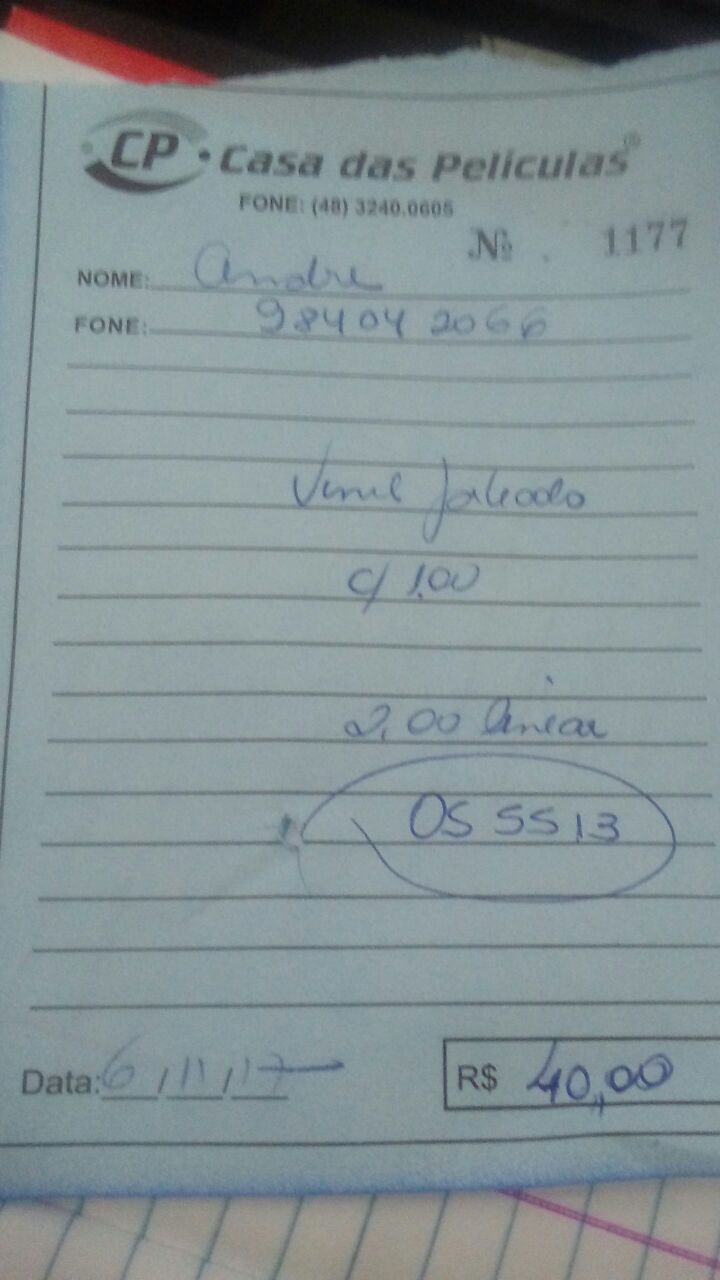 CP • Casa das Películas®
FONE: (48) 3240.0605
Nº. 1177
NOME: Andre
FONE: 98404 2066
Vinil Jateado
c/ 1.00
2,00 linear
OS 5513
Data: 6/11/17
R$ 40,00